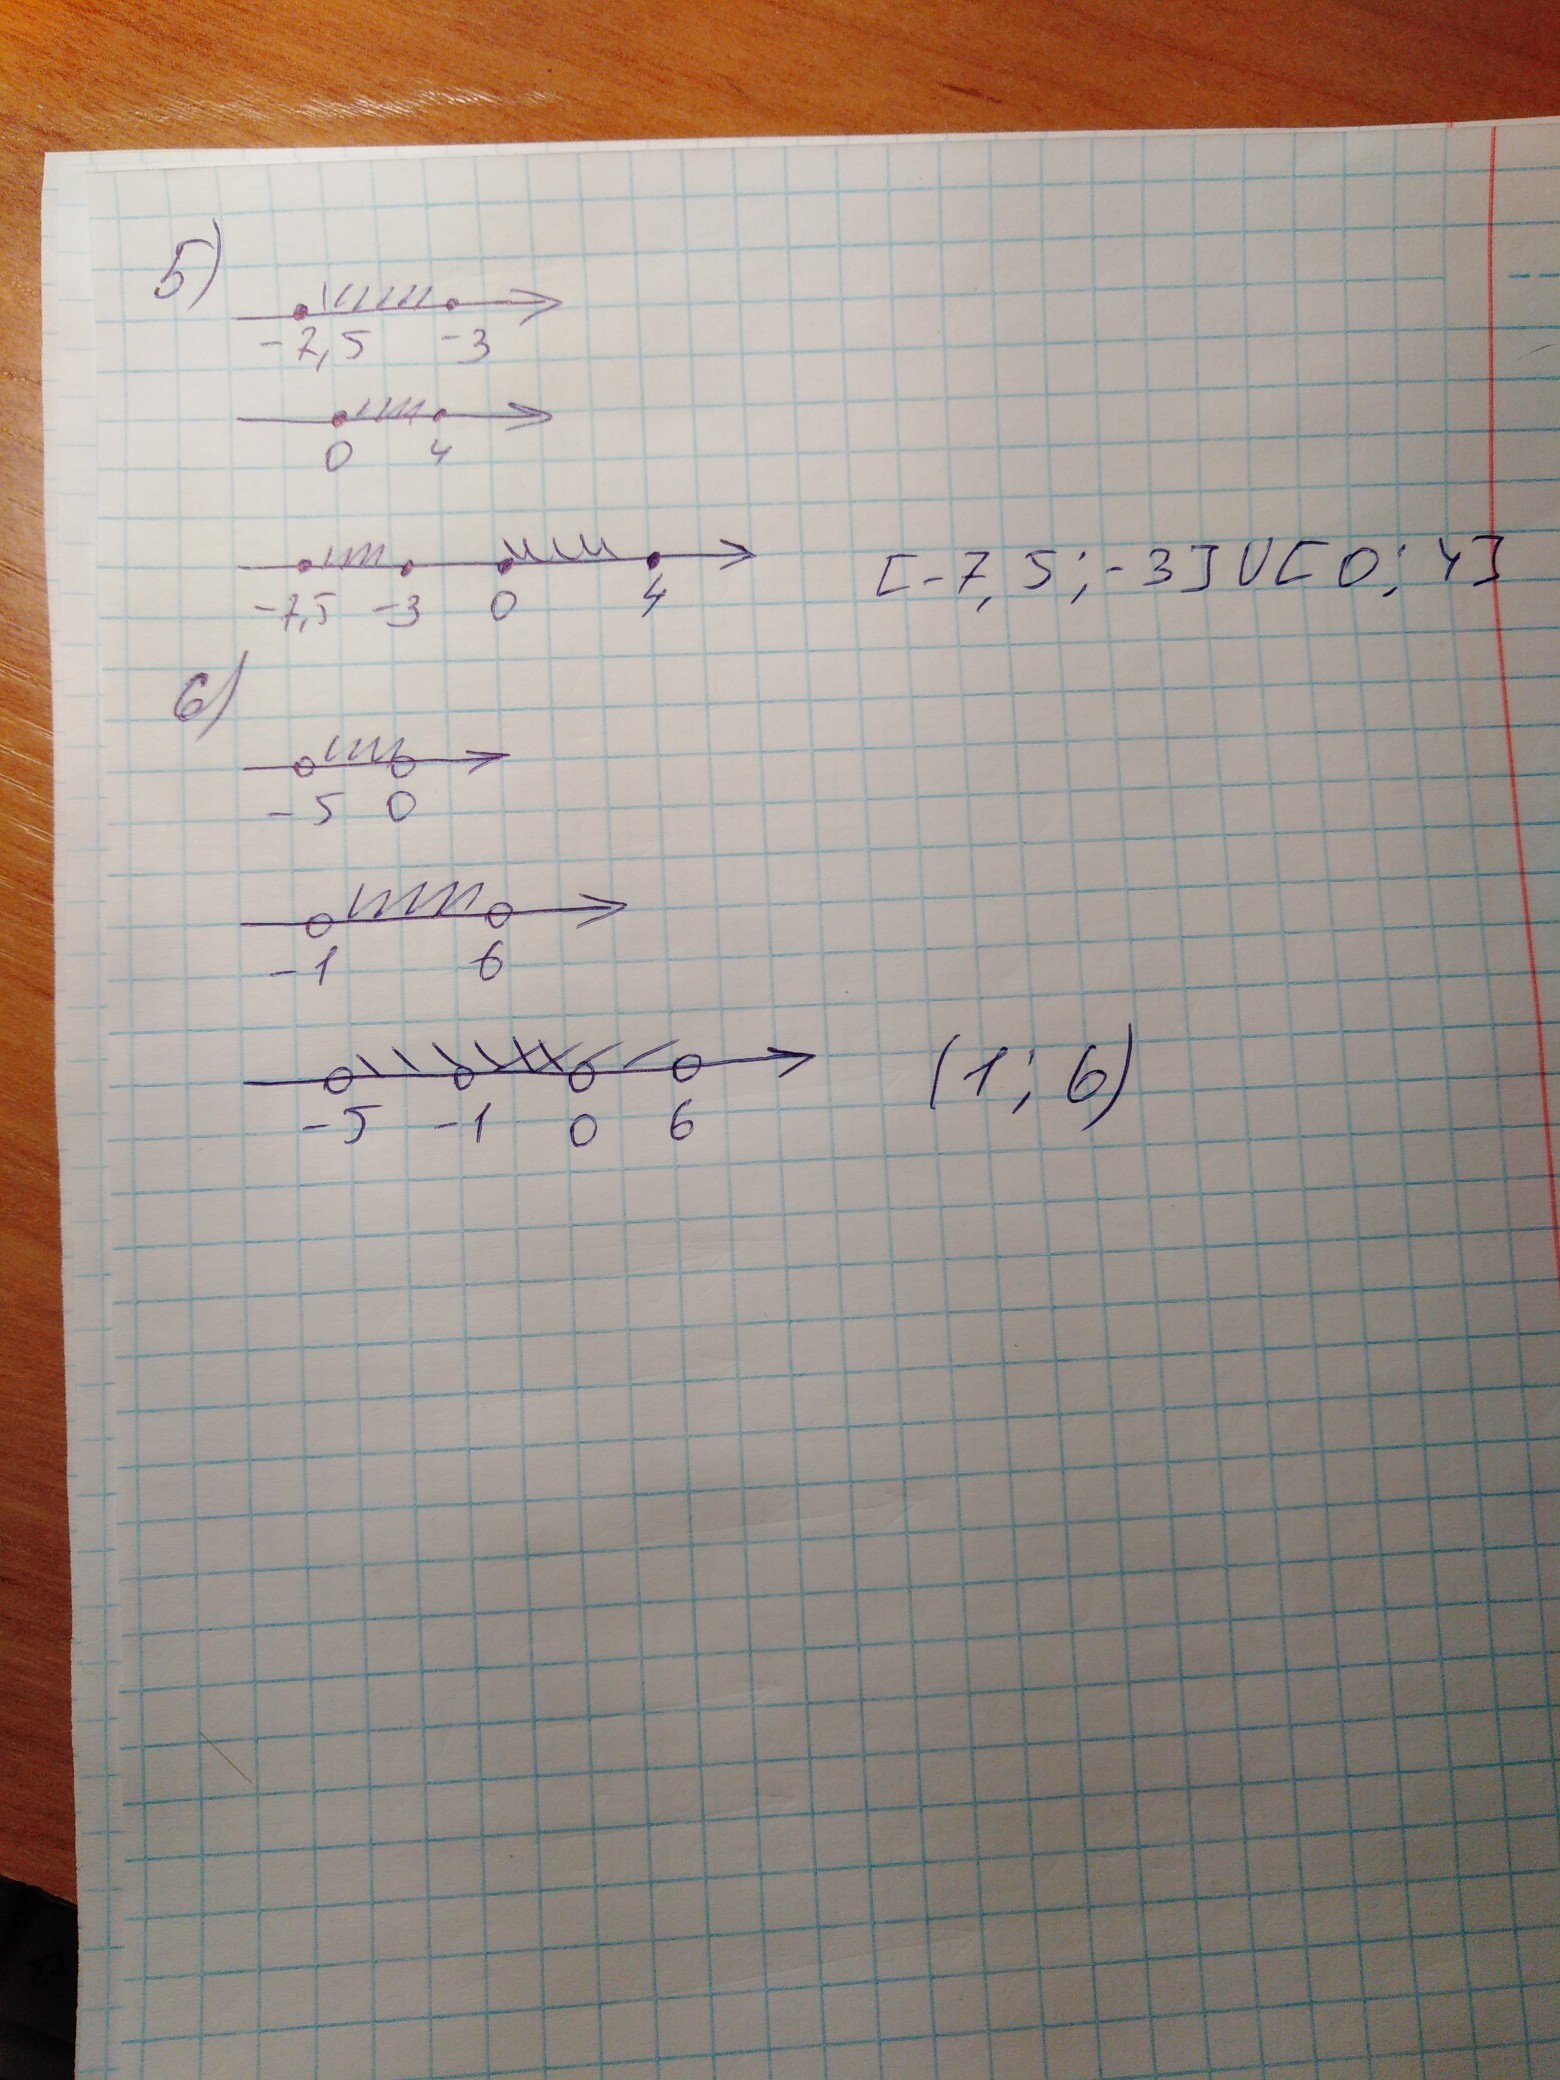 5)
-7,5 -3
0 4
-7,5 -3 0 4 [-7,5;-3]U[0;4]
6)
-5 0
-1 6
-5 -1 0 6 (1;6)